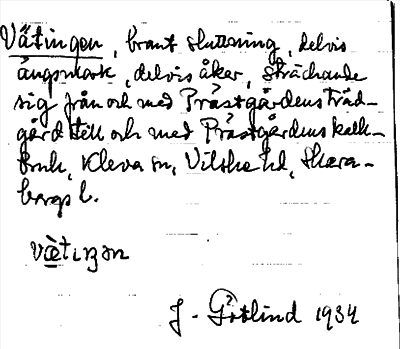 Vätingen, brant sluttning, delvis
ängsmark, delvis åker, sträckande
sig från och med Prästgårdens träd-
gård till och med Prästgårdens kalk-
bruk, Kleva sn, Vilske hd, Skara-
borgs l.
J. Götlind 1934